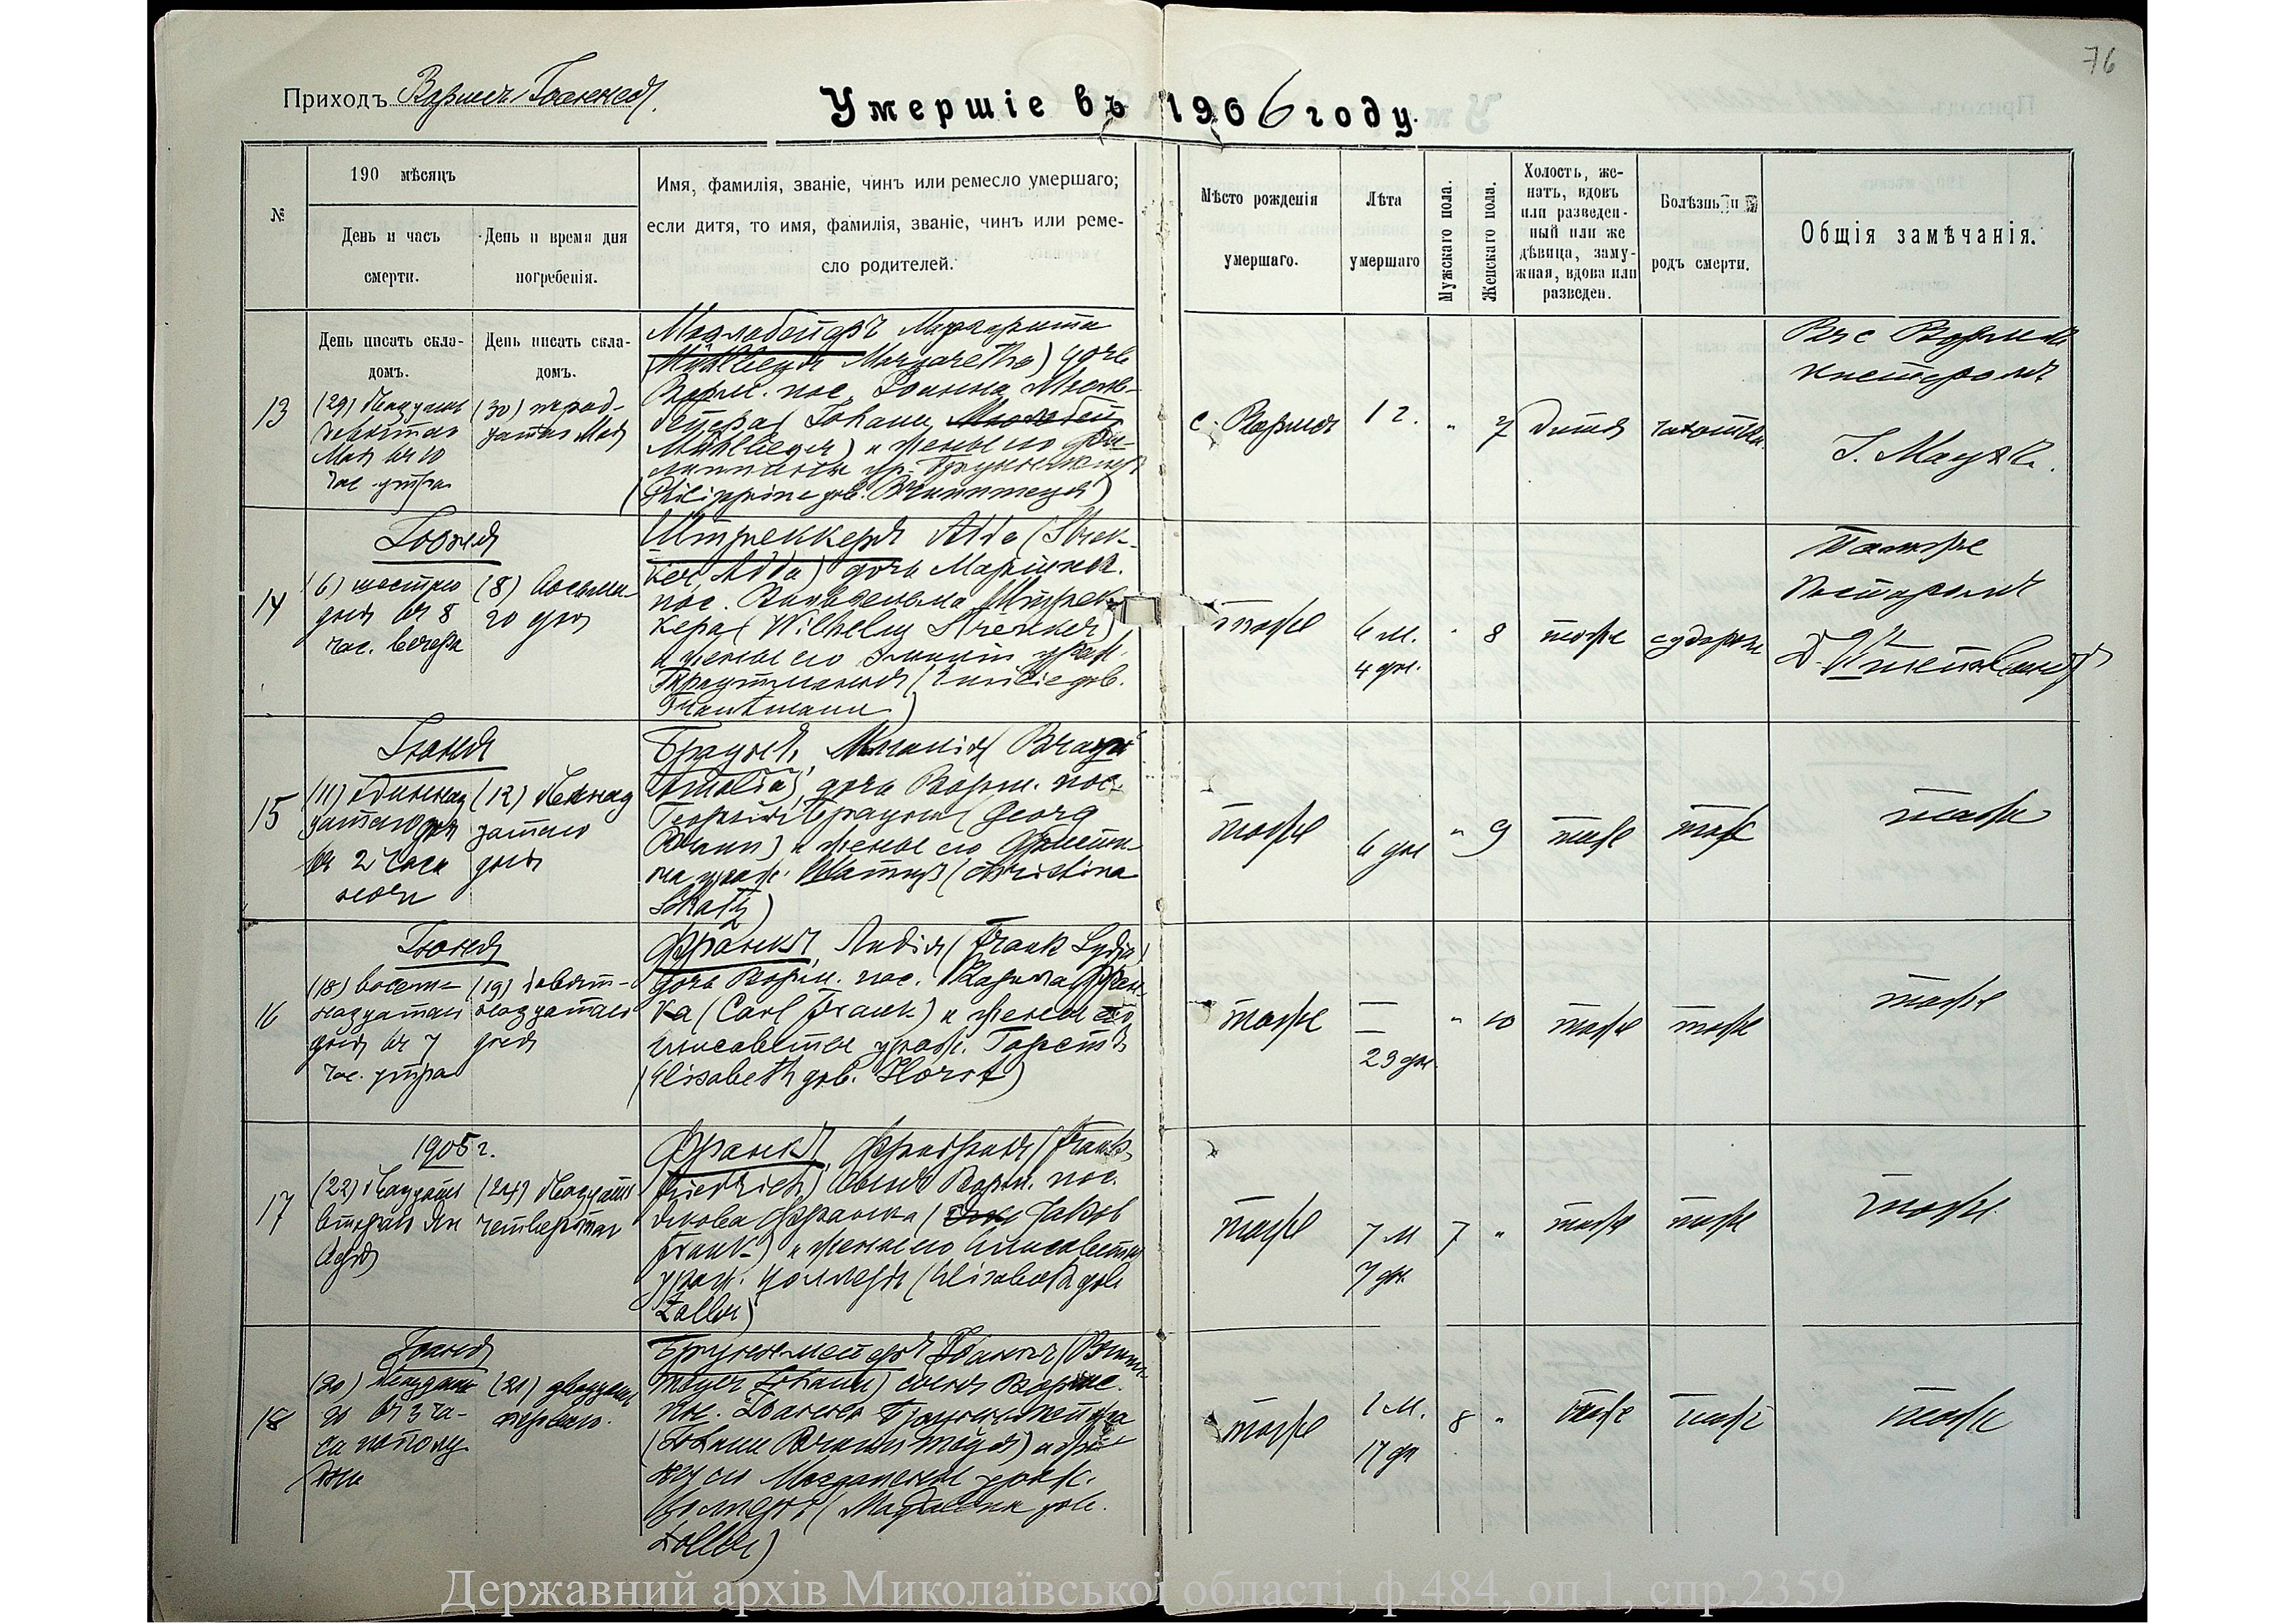 76
Приходъ Вормсъ-Іоганнесъ.
Умершіе въ 1906 году.
№
190 мѣсяцъ
День и часъ
смерти.
День и время дня
погребенія.
Имя, фамилія, званіе, чинъ или ремесло умершаго;
если дитя, то имя, фамилія, званіе, чинъ или реме-
сло родителей.
Мѣсто рожденія
умершаго.
Лѣта
умершаго
Мужскаго пола.
Женскаго пола.
Холостъ, же-
натъ, вдовъ
или разведен-
ный или же
дѣвица, заму-
жная, вдова или
разведен.
Болѣзнь и
родъ смерти.
Общія замѣчанія.
День писать скла-
домъ.
День писать скла-
домъ.
13
(29) двадцать
девятаго
Мая въ 10
час. утра
(30) тридцатаго Мая
Маргарита
Margaretha) дочь
Ворм. пос. Іоанна
Johann
и жены его
Philippine geb.
с. Вормсъ
1 г.
"
7
дитя
чахотка
Вormсъ
кистеромъ
14
Іюня
(6) шестого
дня въ 8
час. вечера
(8) восьми
го дня
Штреккеръ Alda (Strek-
ker, Alda) дочь
пос. Вильгельма Штрек-
кера (Wilhelm Strekker)
и жены его Эмиліи урож.
Траутманнъ (Emilie geb.
Trautmann)
тоже
6 м.
4 дн.
"
8
тоже
судороги
Также
Пасторомъ
15
Іюня
(11) одиннад
цатаго дня
въ 2 часа
ночи
(12) двѣнад
цатаго
дня
Браунъ, Амалія (Braun
Amalia), дочь Ворм. пос.
Георгія Браунъ (Georg
Braun) и жены его Христи-
на урож. Шатцъ (Christina
Schatz)
тоже
6 дн
"
9
тоже
тоже
тоже
16
Іюня
(18) восем-
надцатаго
дня въ 7
час. утра
(19) девят-
надцатаго
дня
Франкъ, Лидія (Frank Lydia)
дочь Ворм. пос. Карла Фран-
ка (Carl Frank) и жены его
Елисаветы урож. Горстъ
(Elisabeth geb. Horst)
тоже
—
—
23 дн.
"
10
тоже
тоже
тоже
17
1905 г.
(22) двадцать
второго Ян
(24) двадцать
четвертаго
Франкъ, Фридрихъ (Frank,
Friedrich) сынъ Ворм. пос.
Якова Франка (Jakob
Frank) и жены его Елисаветы
урож. Цоллеръ (Elisabeth geb.
Zoller)
тоже
7 м
7 дн.
7
"
тоже
тоже
тоже
18
Іюня
(20) двадцата
го въ 3 ча-
са пополу-
дни
(21) двадцать
перваго.
Бруннемейеръ Іоаннъ (Brunn-
meyer Johann) сынъ Вормс.
пос. Іоанна Бруннемейера
(Johann Brunnmeyer) и
его Магдалены урож.
Цоллеръ (Magdalena geb.
Zoller)
тоже
1 м.
17 дн
8
"
тоже
тоже
тоже
Державний архів Миколаївської області, ф.484, оп.1, спр.2359